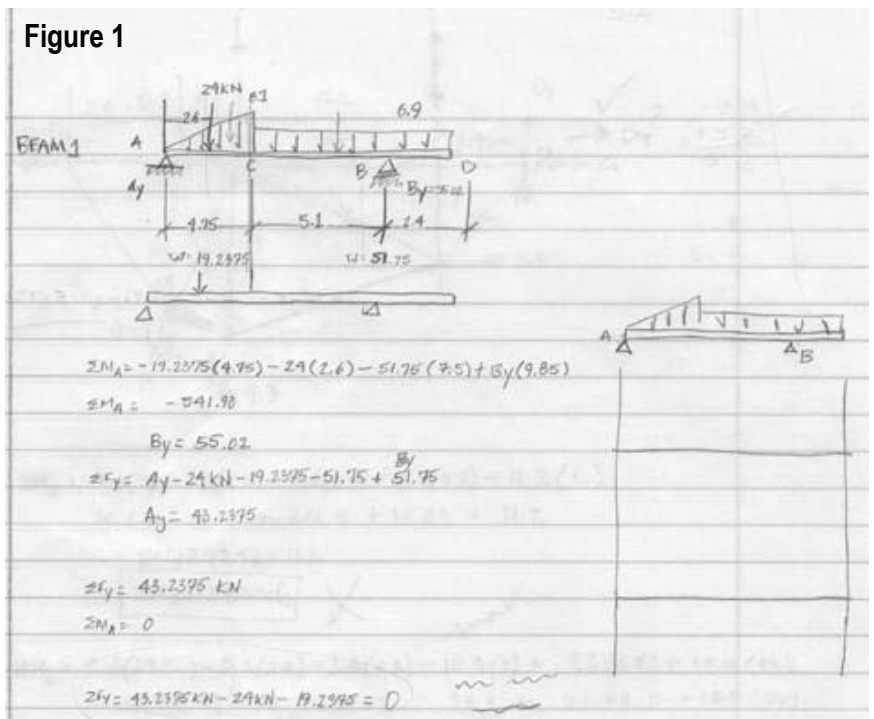 Figure 1
24KN 8.1
2.6 6.9
BEAM 1 A C B D
Ay By=
4.75 5.1 2.4
W=19.2375 W=51.75
A B
ΣMA= -19.2375(4.75)-24(2.6)-51.75(7.5)+By(9.85)
ΣMA= -541.90
By= 55.02
By
ΣFy= Ay-24KN-19.2375-51.75+51.75
Ay= 43.2375
ΣFy= 43.2375 KN
ΣMA= 0
ΣFy= 43.2375KN-24KN-19.2375=0